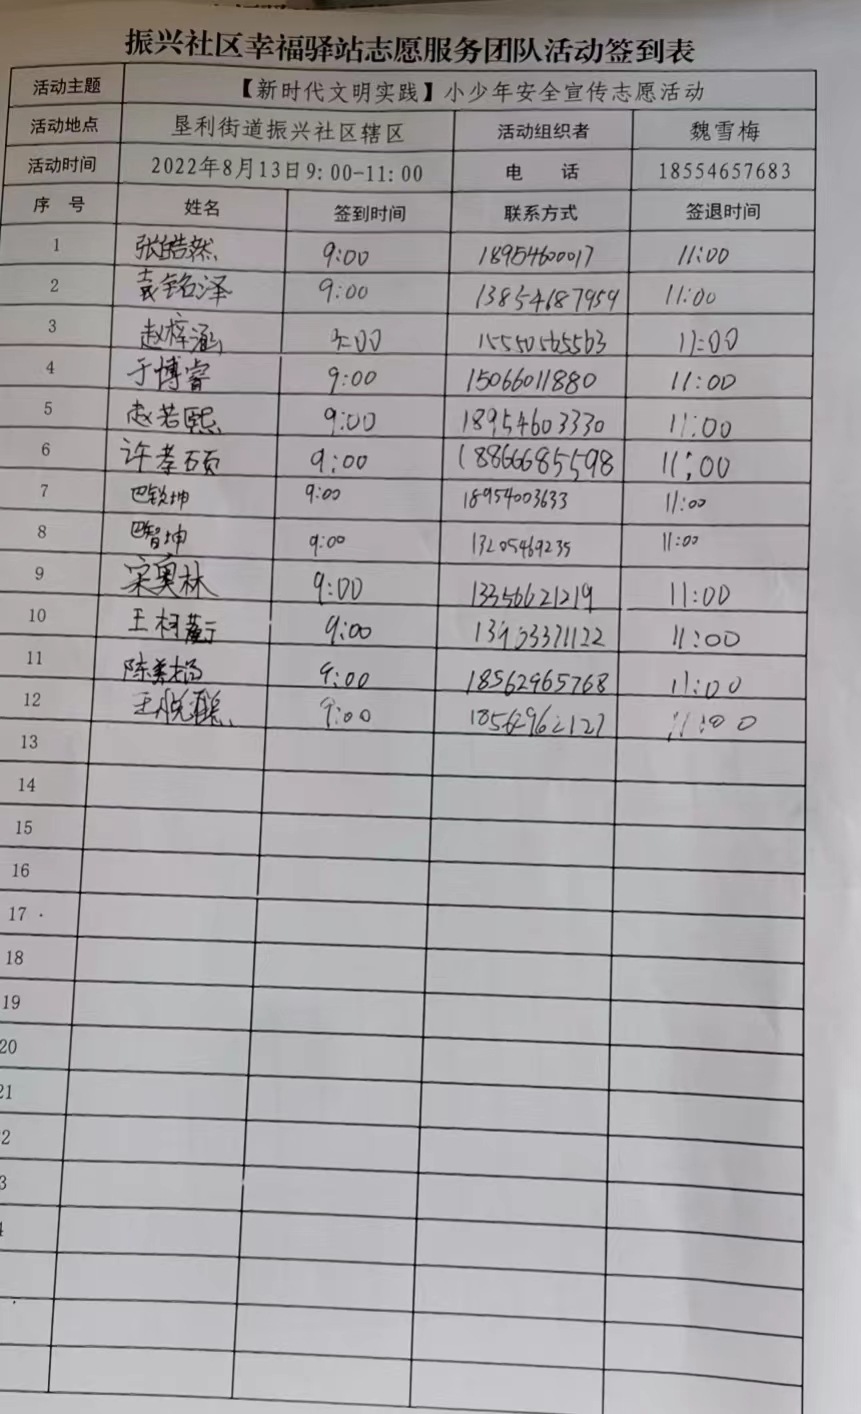 振兴社区幸福驿站志愿服务团队活动签到表
活动主题 【新时代文明实践】小少年安全宣传志愿活动
活动地点 垦利街道振兴社区辖区 活动组织者 魏雪梅
活动时间 2022年8月13日9:00-11:00 电 话 18554657683
序 号 姓名 签到时间 联系方式 签退时间
1 张皓然 9:00 18954600017 11:00
2 袁铭泽 9:00 13854687959 11:00
3 赵梓涵 9:00 15550565563 11:00
4 于博睿 9:00 15066011880 11:00
5 赵若熙 9:00 18954603330 11:00
6 许孝硕 9:00 18866685598 11:00
7 巴钦坤 9:00 18954003633 11:00
8 巴智坤 9:00 13205469235 11:00
9 宋奥林 9:00 13356621219 11:00
10 王柯 9:00 11:00
11 陈美扬 9:00 18562965768 11:00
12 王悦 9:00 18562962127 11:00
13
14
15
16
17
18
19
20
21
2
3